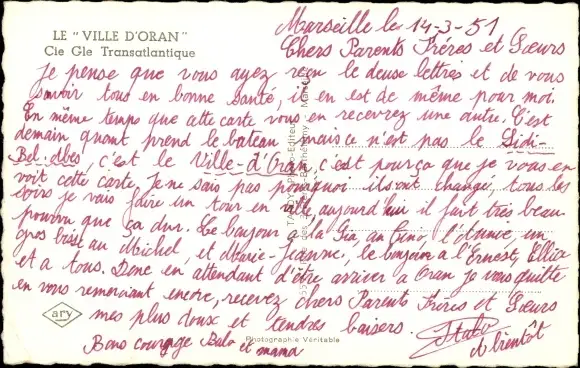 LE "VILLE D'ORAN"
Cie Gle Transatlantique
Marseille le 14-3-51
Chers Parents Fréres et Sœurs
Je pense que vous ayez reçu le deuse lettres et de vous
savoir tous en bonne santé, il en est de même pour moi.
En même temps que cette carte vous en recevrez une autre. C'est
demain quont prend le bateau mais ce n'est pas le Sidi-
Bel-Abes, c'est le Ville-d'Oran c'est pourça que je vous en
voit cette carte. Je ne sais pas pourquoi ils ont changé, tous les
soirs je vais faire un tour en ville, aujourd'hui il fait très beau
pourvu que ça dur. Le bonjour à la Gia, au Gino, un
gros bise au Michel, et Marie-Jeanne, le bonjour a l'Ernest,
et a tous. Donc en attendant d'être arriver a Oran je vous quitte
en vous remerciant encore, recevez chers Parents Fréres et Sœurs
mes plus doux et tendres baisers.
Bons courage Balo et mama
A bientôt
ary
Photographie Véritable